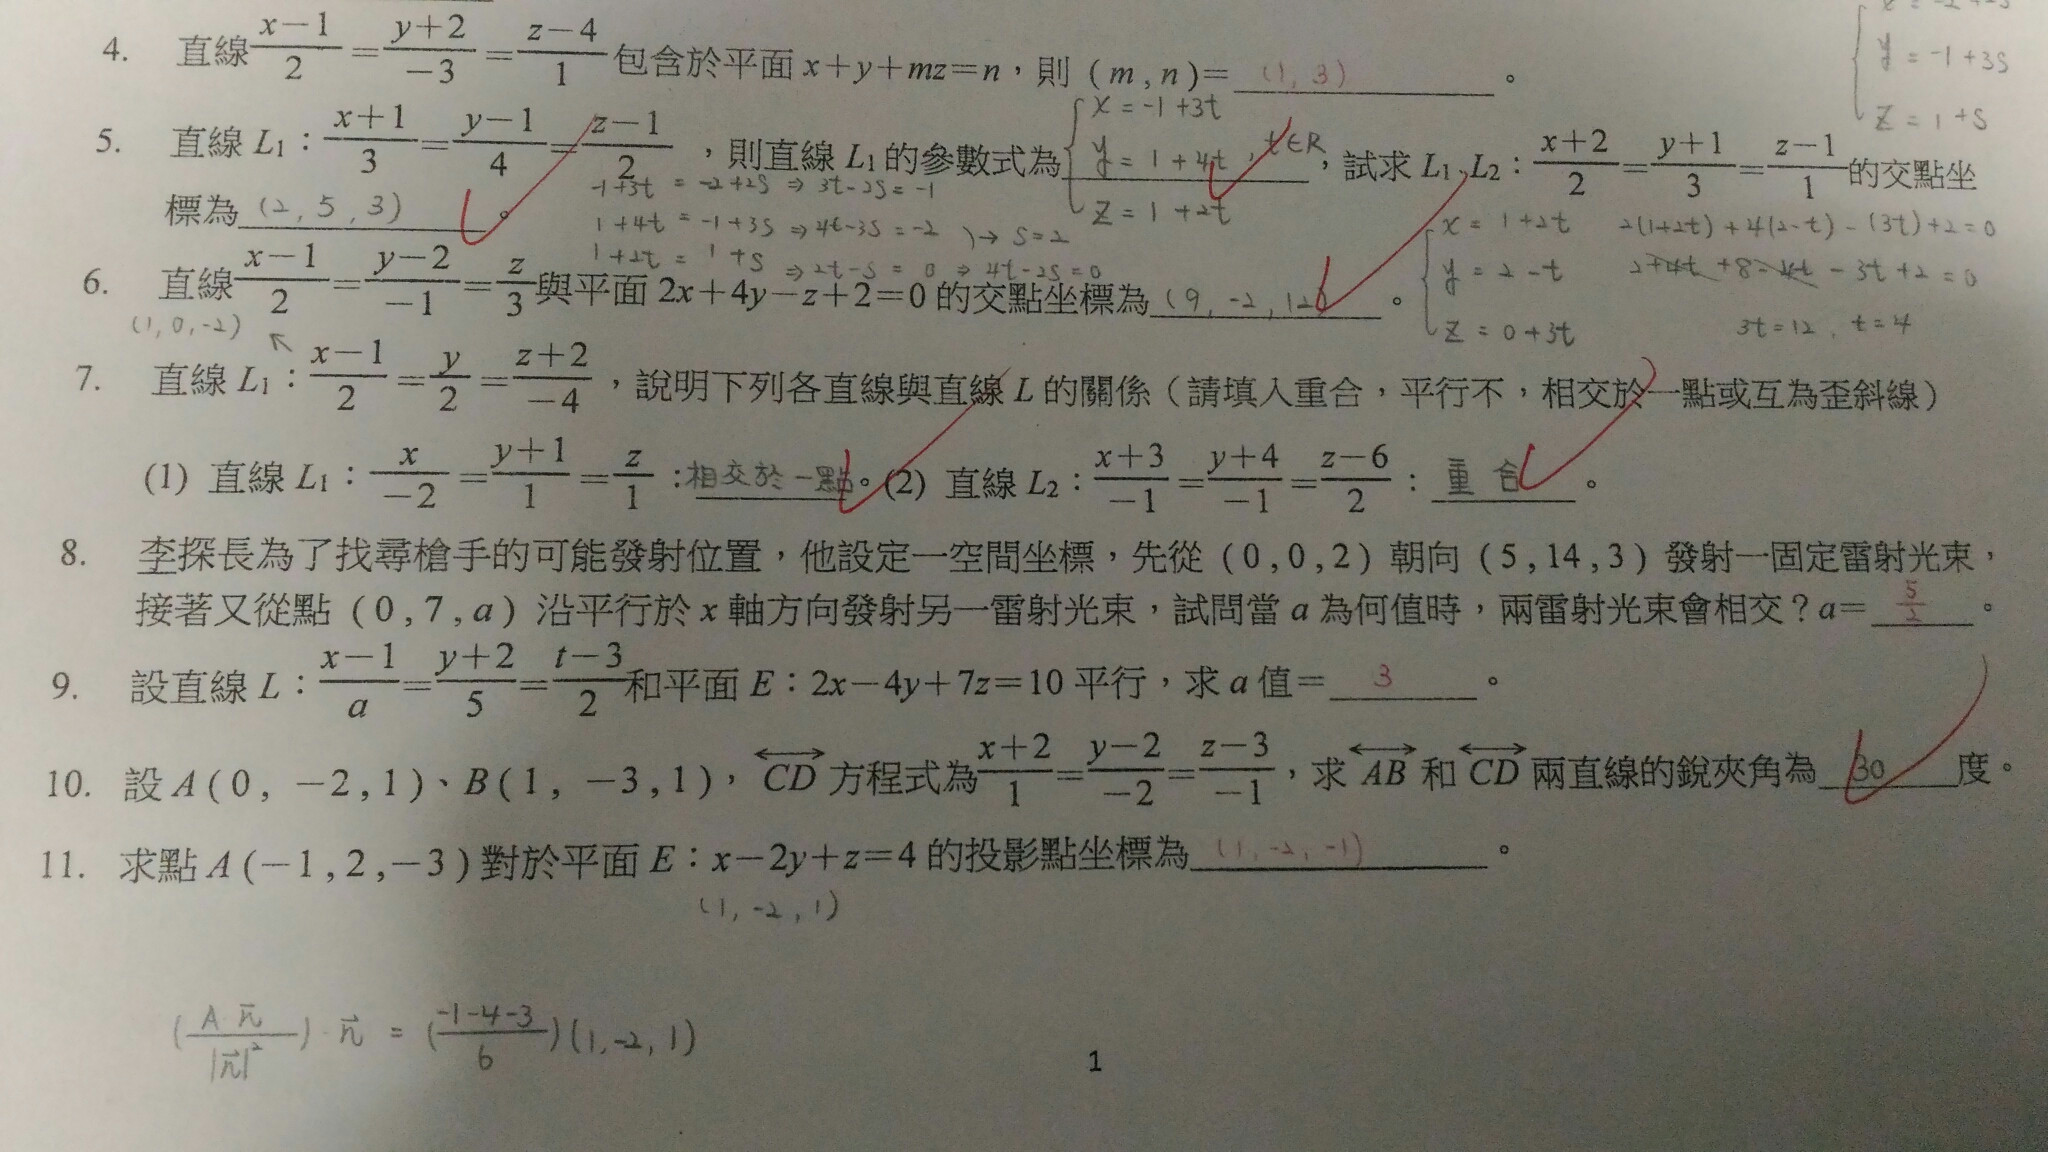 4. 直線 (x−1)/2 = (y+2)/−3 = (z−4)/1 包含於平面 x+y+mz=n,則 (m,n)= (1,3) 。
y = -1+3s
z = 1+s
5. 直線 L1:(x+1)/3 = (y−1)/4 = (z−1)/2 ,則直線 L1 的參數式為 { x = -1+3t
y = 1+4t , t∈R
z = 1+2t
,試求 L1、L2:(x+2)/2 = (y+1)/3 = (z−1)/1 的交點坐
標為 (2,5,3) 。
-1+3t = -2+2s ⇒ 3t-2s = -1
1+4t = -1+3s ⇒ 4t-3s = -2 )→ s=2
1+2t = 1+s ⇒ 2t-s = 0 ⇒ 4t-2s=0
6. 直線 (x−1)/2 = (y−2)/−1 = z/3 與平面 2x+4y−z+2=0 的交點坐標為 (9,-2,12) 。
x = 1+2t
y = 2-t
z = 0+3t
2(1+2t)+4(2-t)-(3t)+2=0
2+4t+8-4t-3t+2=0
3t=12, t=4
(1,0,-2)
7. 直線 L1:(x−1)/2 = y/2 = (z+2)/−4 ,說明下列各直線與直線 L 的關係(請填入重合,平行不,相交於一點或互為歪斜線)
(1) 直線 L1:x/−2 = (y+1)/1 = z/1 :相交於一點。(2) 直線 L2:(x+3)/−1 = (y+4)/−1 = (z−6)/2 : 重合 。
8. 李探長為了找尋槍手的可能發射位置,他設定一空間坐標,先從 (0,0,2) 朝向 (5,14,3) 發射一固定雷射光束,
接著又從點 (0,7,a) 沿平行於 x 軸方向發射另一雷射光束,試問當 a 為何值時,兩雷射光束會相交?a= 5/2 。
9. 設直線 L:(x−1)/a = (y+2)/5 = (t−3)/2 和平面 E:2x−4y+7z=10 平行,求 a 值= 3 。
10. 設 A(0, −2,1)、B(1, −3,1),CD 方程式為 (x+2)/1 = (y−2)/−2 = (z−3)/−1 ,求 AB 和 CD 兩直線的銳夾角為 30 度。
11. 求點 A(−1,2,−3) 對於平面 E:x−2y+z=4 的投影點坐標為 (1,-2,-1) 。
(1,-2,1)
(A·n⃗/|n⃗|²)·n⃗ = (-1-4-3/6)(1,-2,1)
1